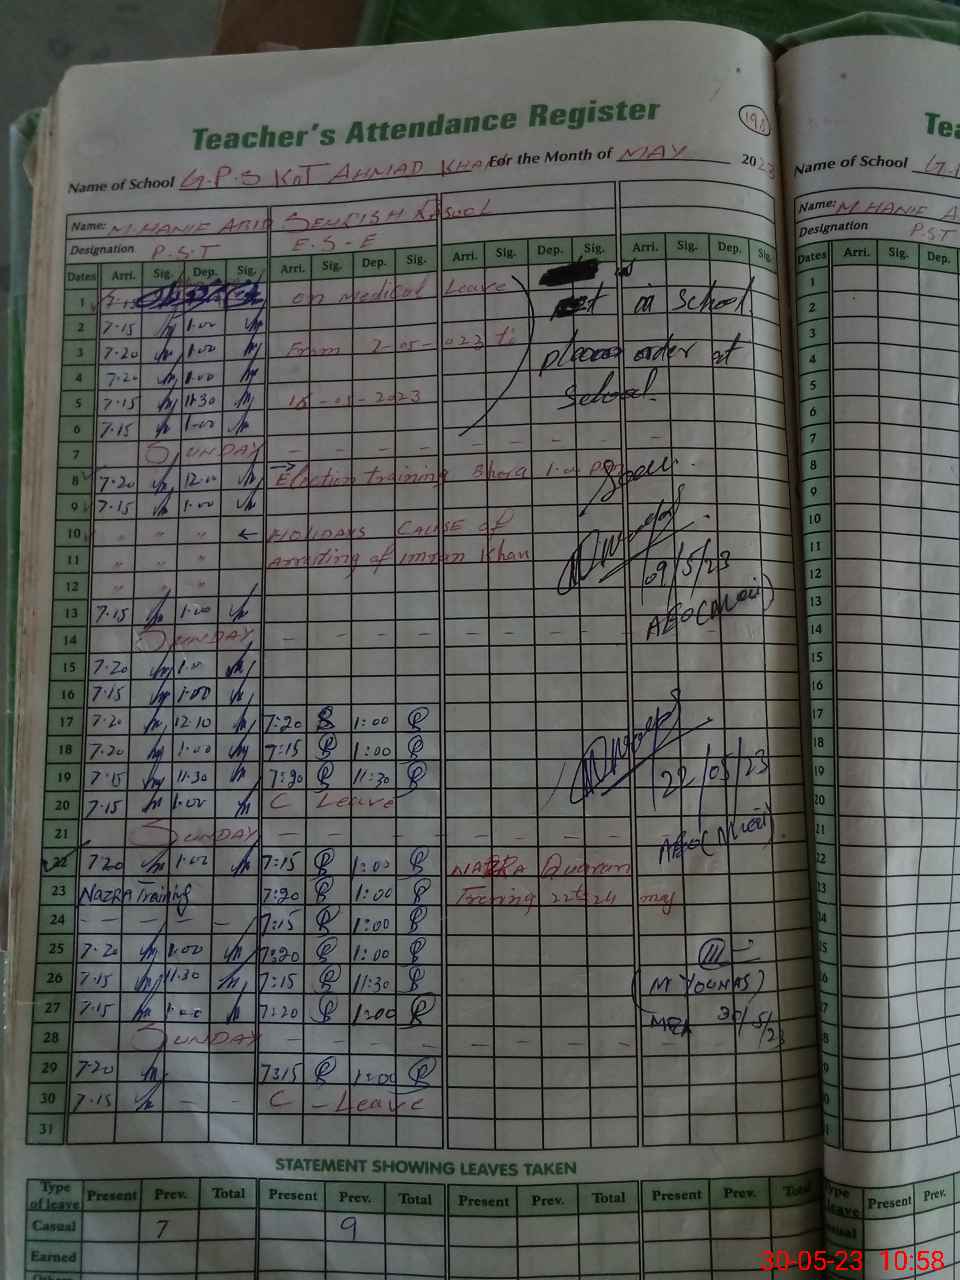 Teacher's Attendance Register
198
Name of School G.P.S KOT AHMAD KHAN For the Month of MAY 2023
Name: M. HANIF ABID
Designation P.S.T E.S-E
Dates Arri. Sig. Dep. Sig. Arri. Sig. Dep. Sig. Arri. Sig. Dep. Sig. Arri. Sig. Dep. Sig.
1 7-15 on medical Leave in School.
2 7-15 1.00
3 7.20 1.00 From 2-05-023 to order at
4 7.20 1.00
5 7.15 11.30 -05-2023 School.
6 7.15 1.00
7 SUNDAY
8 7.20 12.00 → Election training Bhera 1.00 pm
9 7.15 1.00
10 " " " ← HOLIDAYS CAUSE of
11 " " " arresting of imran Khan 09/5/23
12 " " "
13 7.15 1.00 AEO
14 SUNDAY
15 7.20
16 7.15 1.00
17 7.20 12.10 7:20 1:00
18 7.20 1.00 7:15 1:00
19 7:15 11.30 7:20 11:30 22/05/23
20 7.15 1.00 C Leave
21 SUNDAY AEO
22 7.20 1.00 7:15 1:00 NAZRA Quaran
23 NAZRA Training 7:20 1:00 Trening 22 to 24 may
24 7:15 1:00
25 7.20 1.00 7:20 1:00
26 7.15 11.30 7:15 11:30 (M YOUNAS)
27 7.15 1.00 7:20 1:00 MEA 30/5/23
28 SUNDAY
29 7.20 7:15 1:00
30 7.15 - - C - Leave
31
STATEMENT SHOWING LEAVES TAKEN
Type of leave Present Prev. Total Present Prev. Total Present Prev. Total Present Prev. Total
Casual 7 9
Earned
Name of School
Name: M. HANIF A
Designation PST
Dates Arri. Sig. Dep.
1
2
3
4
5
6
7
8
9
10
11
12
13
14
15
16
17
18
19
20
21
22
23
Present Prev.
30-05-23 10:58